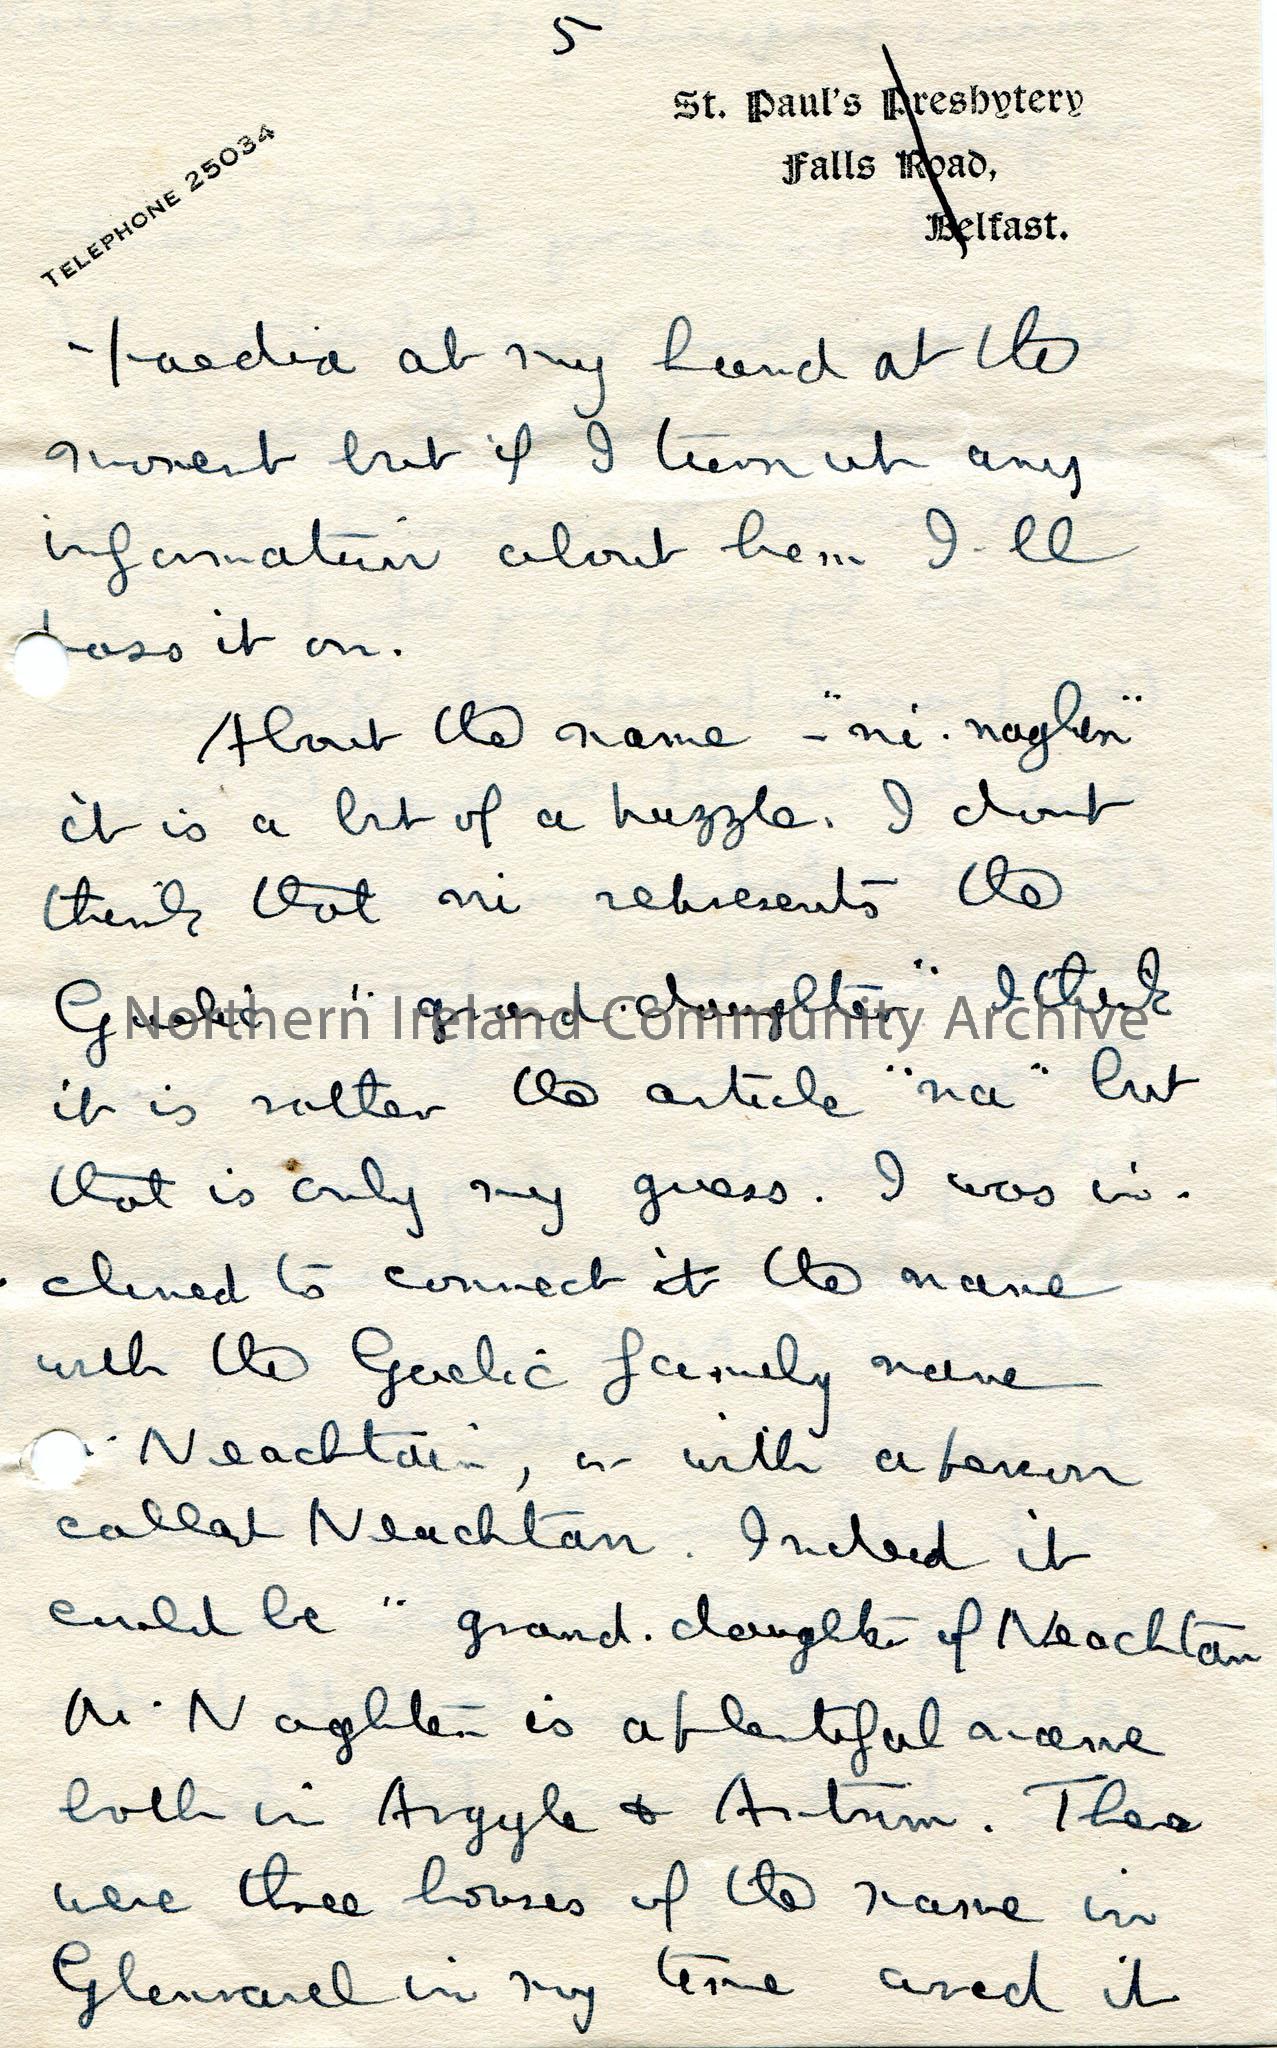 5
St. Paul's Presbytery
Falls Road,
Belfast.
TELEPHONE 25034
-paedia at my hand at the
moment but if I turn up any
information about hem I'll
pass it on.
About the name - "ni. naghen"
it is a bit of a puzzle. I dont
think that ni represents the
Gaelic "grand. daughter" I think
it is rather the article "na" but
that is only my guess. I was in-
clined to connect it the name
with the Gaelic family name
Neachtain, or with a person
called Neachtan. Indeed it
could be "grand. daughter of Neachtan
Mc Naghten is a plentiful name
both in Argyle & Antrim. There
were three houses of the name in
Glenravel in my time and it
Northern Ireland Community Archive